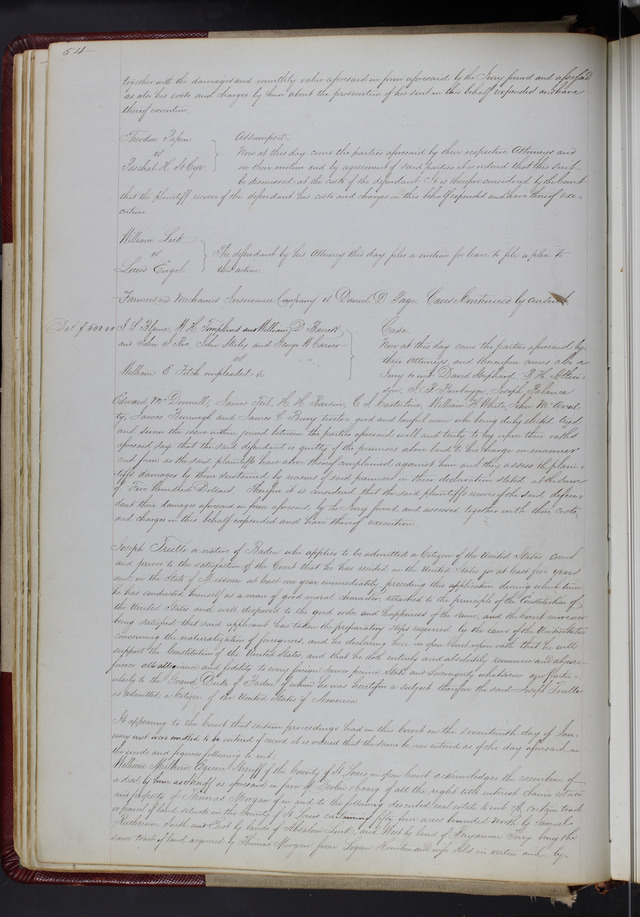 54
together with the damages and monthly value aforesaid in form aforesaid by the Jury found and assessed
as also his costs and charges by him about the prosecution of his suit in this behalf expended and have
thereof execution.
Theodore Papin
vs
Paschal H. St Cyr
Assumpsit.
Now at this day come the parties aforesaid by their respective Attorneys and
on their motion and by agreement of said parties it is ordered that this suit
be dismissed at the costs of the defendant. It is therefore considered by the Court
that the plaintiff recover of the defendant his costs and charges in this behalf expended and have thereof exe-
cution
William
vs
Louis Engel
The defendant by his Attorney this day files a motion for leave to file a plea to
the action.
Farmers and Mechanics Insurance Company vs Daniel D. Page. Cause Continued by consent
Debt $500.00
and John J Roe, John and George W
vs
William E. Fitch impleaded &c
Case
Now at this day come the parties aforesaid by
their Attorneys and thereupon comes also a
Jury to wit David Shephard,
Joseph
Edward Mc Donnell, James H. H. William H White, John
James and James C twelve good and lawful men who being duly elected tried
and sworn the issue within joined between the parties aforesaid well and truly to try upon their oaths
aforesaid, say that the said defendant is guilty of the premises above laid to his charge in manner
and form as the said plaintiffs have above thereof complained against him and they assess the plain-
tiffs damages by them sustained by reason of said premises in their declaration stated at the sum
of Five Hundred Dollars. Therefore it is considered that the said plaintiffs recover of the said defen-
dant their damages aforesaid in form aforesaid by the Jury found and assessed together with their costs
and charges in this behalf expended and have thereof execution.
Joseph a native of Baden who applies to be admitted a Citizen of the United States comes
and proves to the satisfaction of the Court that he has resided in the United States for at least five years
and in the State of Missouri at least one year immediately preceding this application during which time
he has conducted himself as a man of good moral character, attached to the principle of the Constitution of
the United States and well disposed to the good order and happiness of the same, and the Court moreover
being satisfied that said applicant has taken the preparatory steps required by the laws of the United States
concerning the naturalization of foreigners, and he declaring here in open Court upon oath that he will
support the Constitution of the United States, and that he doth entirely and absolutely renounce and abjure
forever all allegiance and fidelity to every foreign power prince State and Sovereignty whatsoever and partic-
ularly to the Grand Duke of Baden of whom he was heretofore a subject therefore the said Joseph
is admitted a Citizen of the United States of America
It appearing to the Court that certain proceedings had in this Court on the Seventeenth day of Jan-
uary inst were omitted to be entered of record it is ordered that the same be now entered as of the day aforesaid in
the words and figures following to wit.
William Milburn Esquire Sheriff of the County of St Louis in open Court acknowledges the execution of
a deed by him as Sheriff as aforesaid in favor of of all the right title interest claim estate
and property of Thomas Morgan of in and to the following described real estate to wit A certain tract
or parcel of land situate in the County of St Louis containing fifty five acres bounded North by Samuel
South and East by lands of Absalom and West by land of Benjamin being the
same tract of land acquired by Thomas Morgan from Logan and wife sold in virtue and by